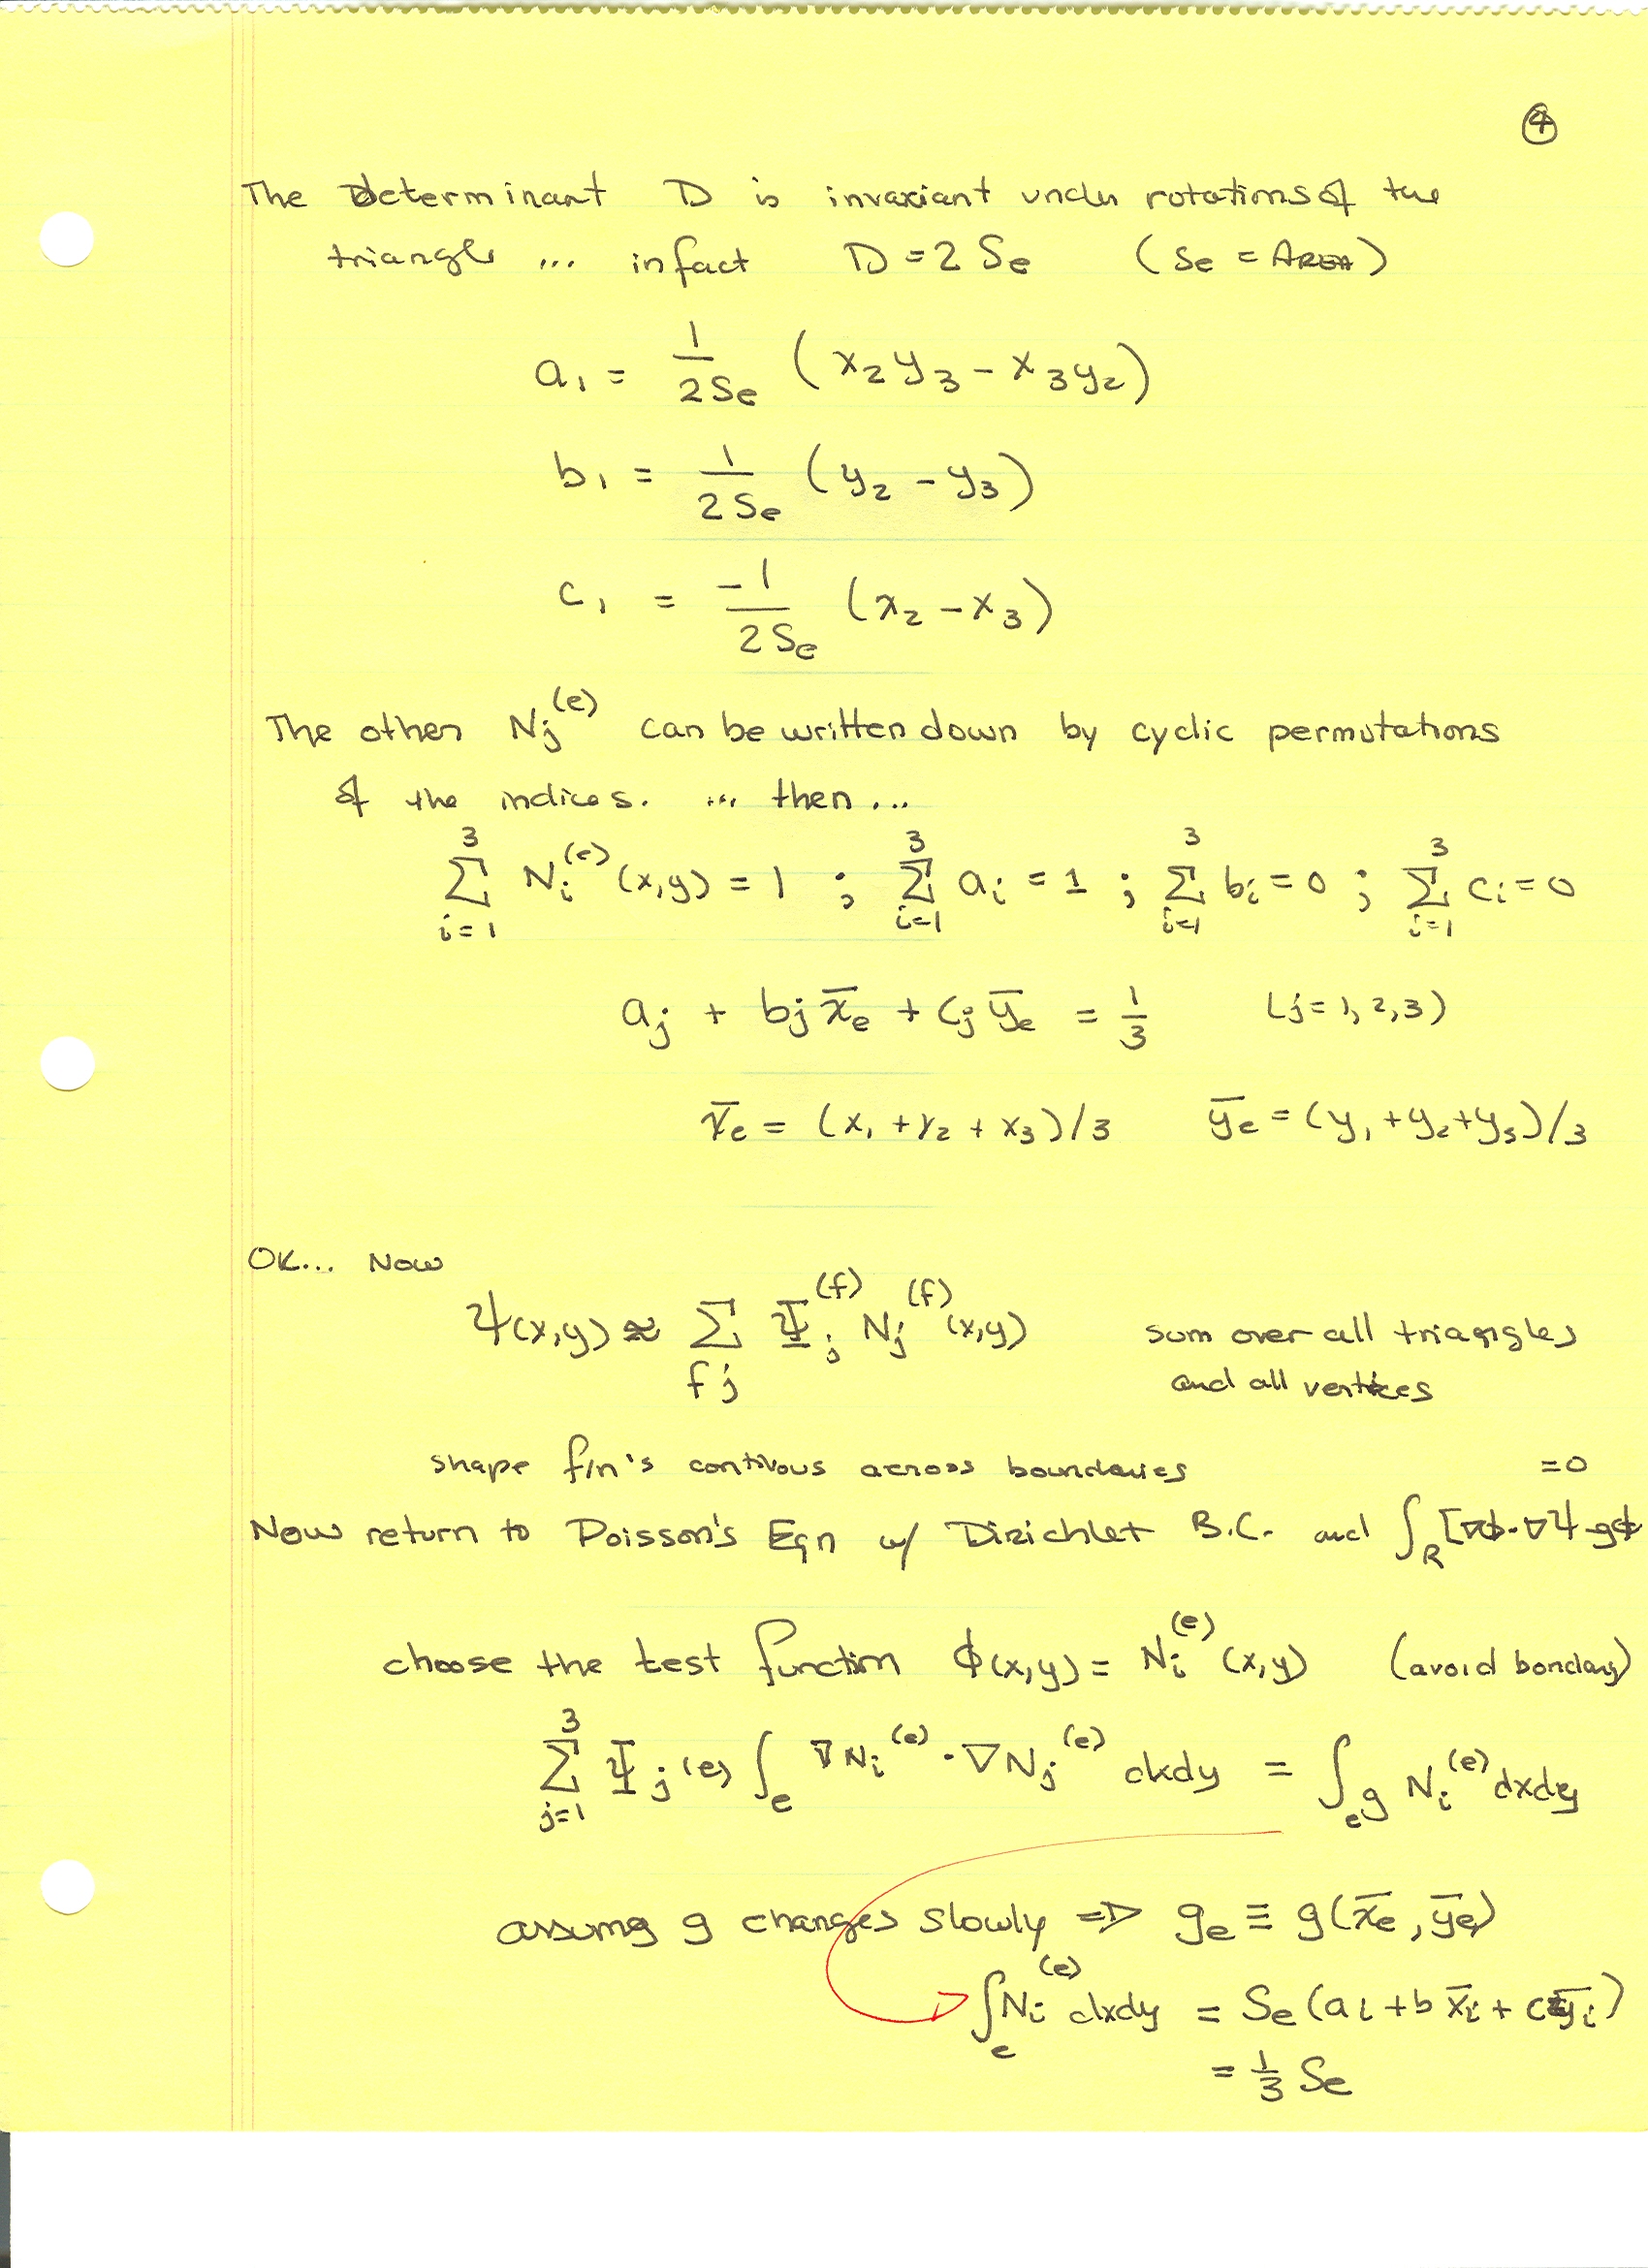 ④
The Determinant D is invariant under rotations of the
triangle ... in fact D = 2 Se (Se = AREA)
a₁ = 1/2Se (x₂y₃ - x₃y₂)
b₁ = 1/2Se (y₂ - y₃)
c₁ = -1/2Se (x₂ - x₃)
The other Nj^(e) can be written down by cyclic permutations
of the indices. ... then ...
∑_{i=1}^{3} Ni^(e)(x,y) = 1 ; ∑_{i=1}^{3} ai = 1 ; ∑_{i=1}^{3} bi = 0 ; ∑_{i=1}^{3} ci = 0
aj + bj x̄e + cj ȳe = 1/3 (j = 1, 2, 3)
x̄e = (x₁ + x₂ + x₃)/3 ȳe = (y₁ + y₂ + y₃)/3
OK... Now
ψ(x,y) ≈ ∑_{f j} Ψj^(f) Nj^(f)(x,y) sum over all triangles
and all vertices
shape f/n's contivous across boundaries =0
Now return to Poisson's Eqn w/ Dirichlet B.C. and ∫_R [∇φ·∇ψ - gφ
choose the test function φ(x,y) = Ni^(e)(x,y) (avoid bondary)
∑_{j=1}^{3} Ψj^(e) ∫_e ∇Ni^(e) · ∇Nj^(e) dxdy = ∫_e g Ni^(e) dxdy
assumg g changes slowly ⇒ ge ≡ g(x̄e, ȳe)
∫_e Ni^(e) dxdy = Se (ai + b x̄i + c ȳi)
= 1/3 Se